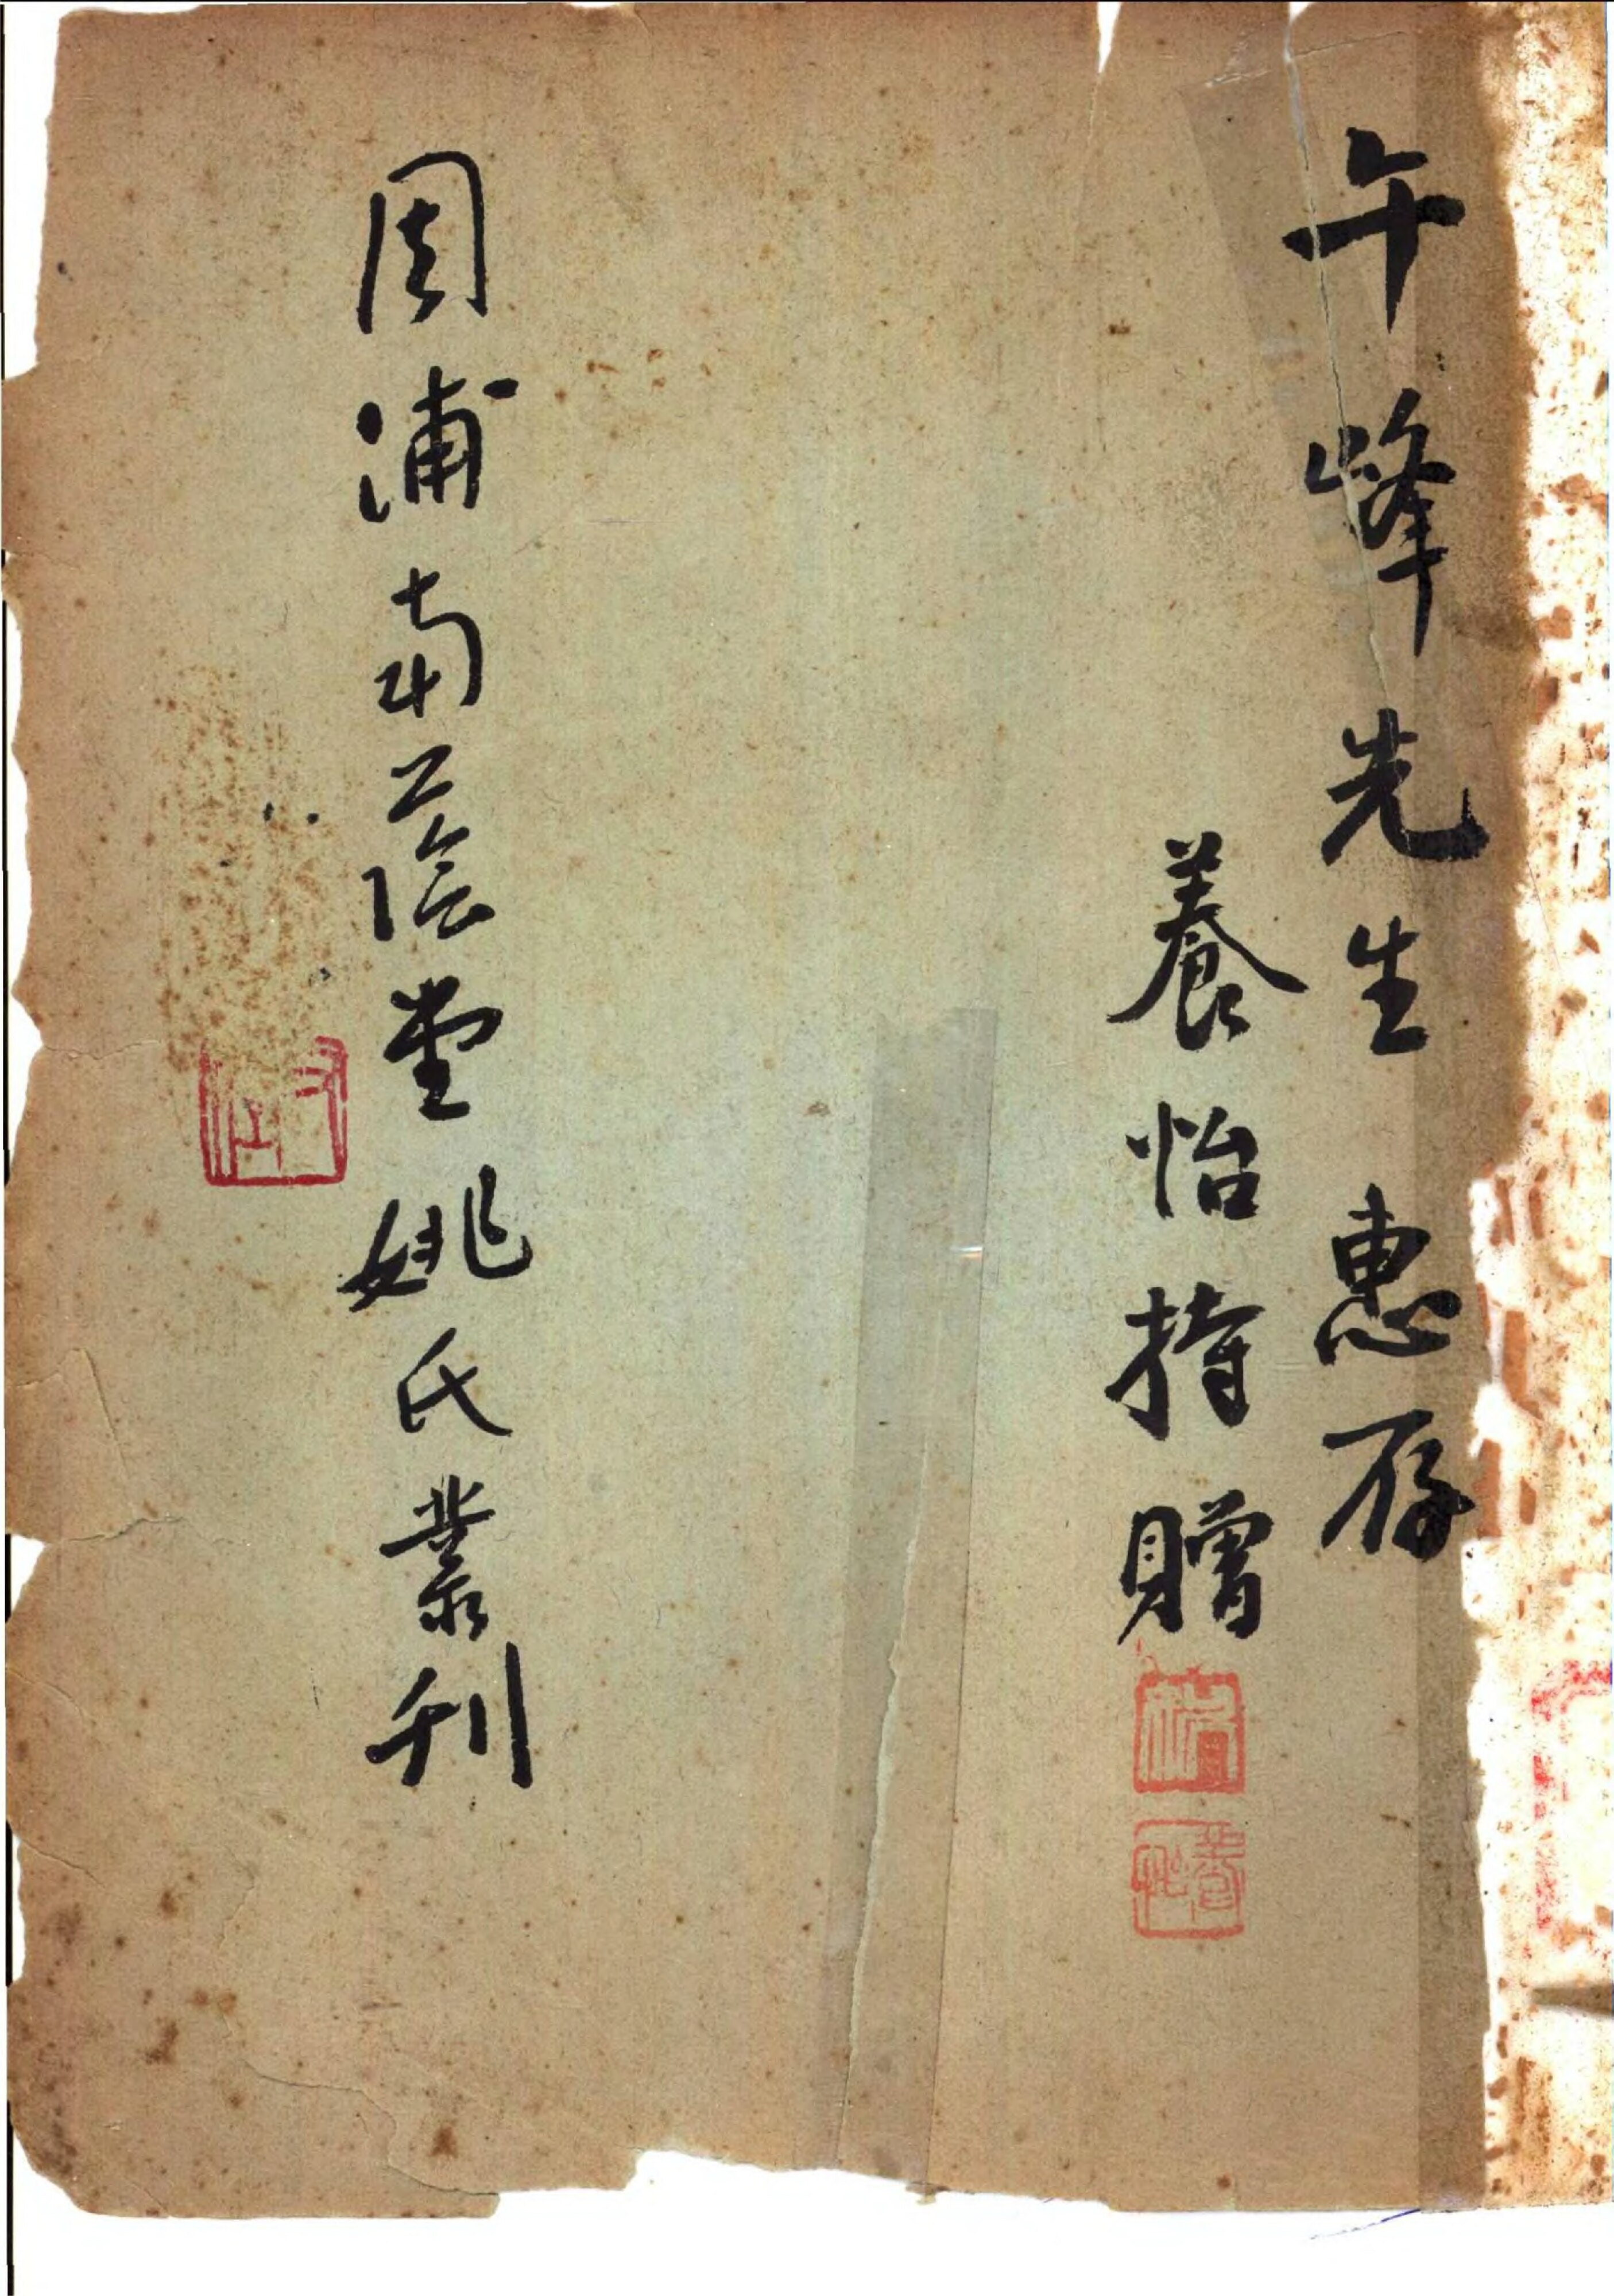 午峰先生惠存
養怡持贈
周浦南蔭堂姚氏叢刊